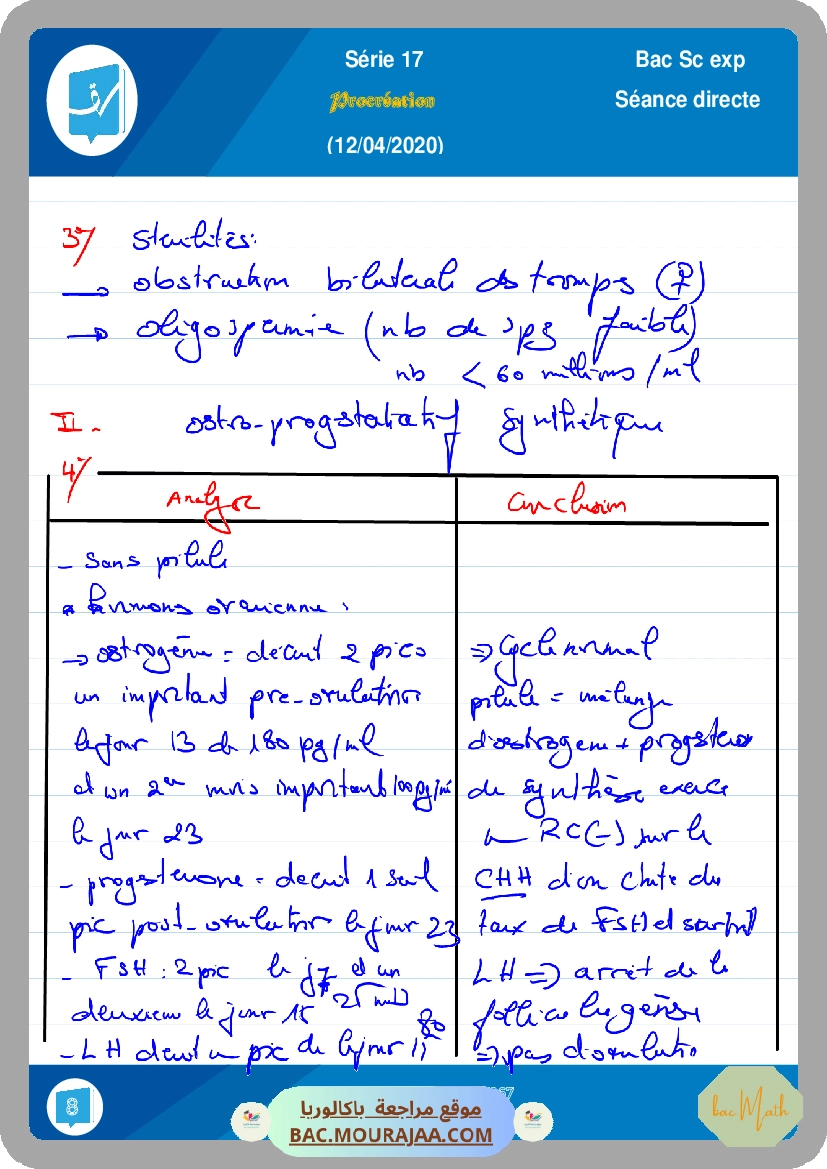 Série 17
Bac Sc exp
Procréation
Séance directe
(12/04/2020)
3°/ Stérilités:
→ obstruction bilatérale des trompes (♀)
→ oligospermie (nb de spz faible)
nb < 60 millions/ml
II. œstro-progestatif synthétique
4°/
Analyse
Conclusion
- Sans pilule
hormones ovarienne :
→ œstrogène = décrit 2 pics
un important pré-ovulation
le jour 13 de 180 pg/ml
et un 2em mois important 100 pg/ml
le jour 23
- progesterone = decrit 1 seul
pic post-ovulation le jour 23
- FSH : 2 pic le j7 et un
deuxieme le jour 15 25
- LH decrit un pic de 80 le jour 15
⇒ Cycle normal
pilule = mélange
d'œstrogene + progesterone
de synthèse exerce
un RC(-) sur le
CHH d'où chute du
taux de FSH et surtout
LH ⇒ arrêt de la
folliculogénèse
⇒ pas d'ovulation
8
موقع مراجعة باكالوريا
BAC.MOURAJAA.COM
bac Math